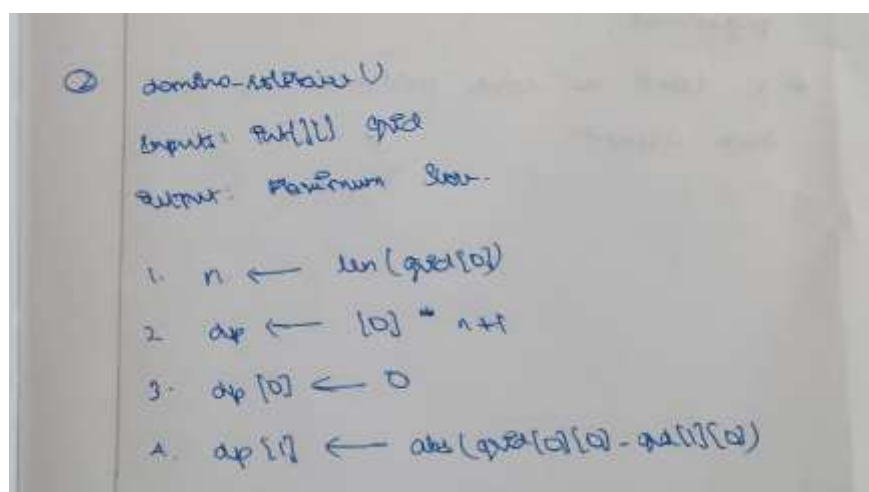 ② domino-solitaire()
Inputs: int[][] grid
Output: Maximum Score.
1. n ← len(grid[0])
2 dp ← [0] * n+1
3. dp[0] ← 0
4. dp[1] ← abs(grid[0][0]-grid[1][0])